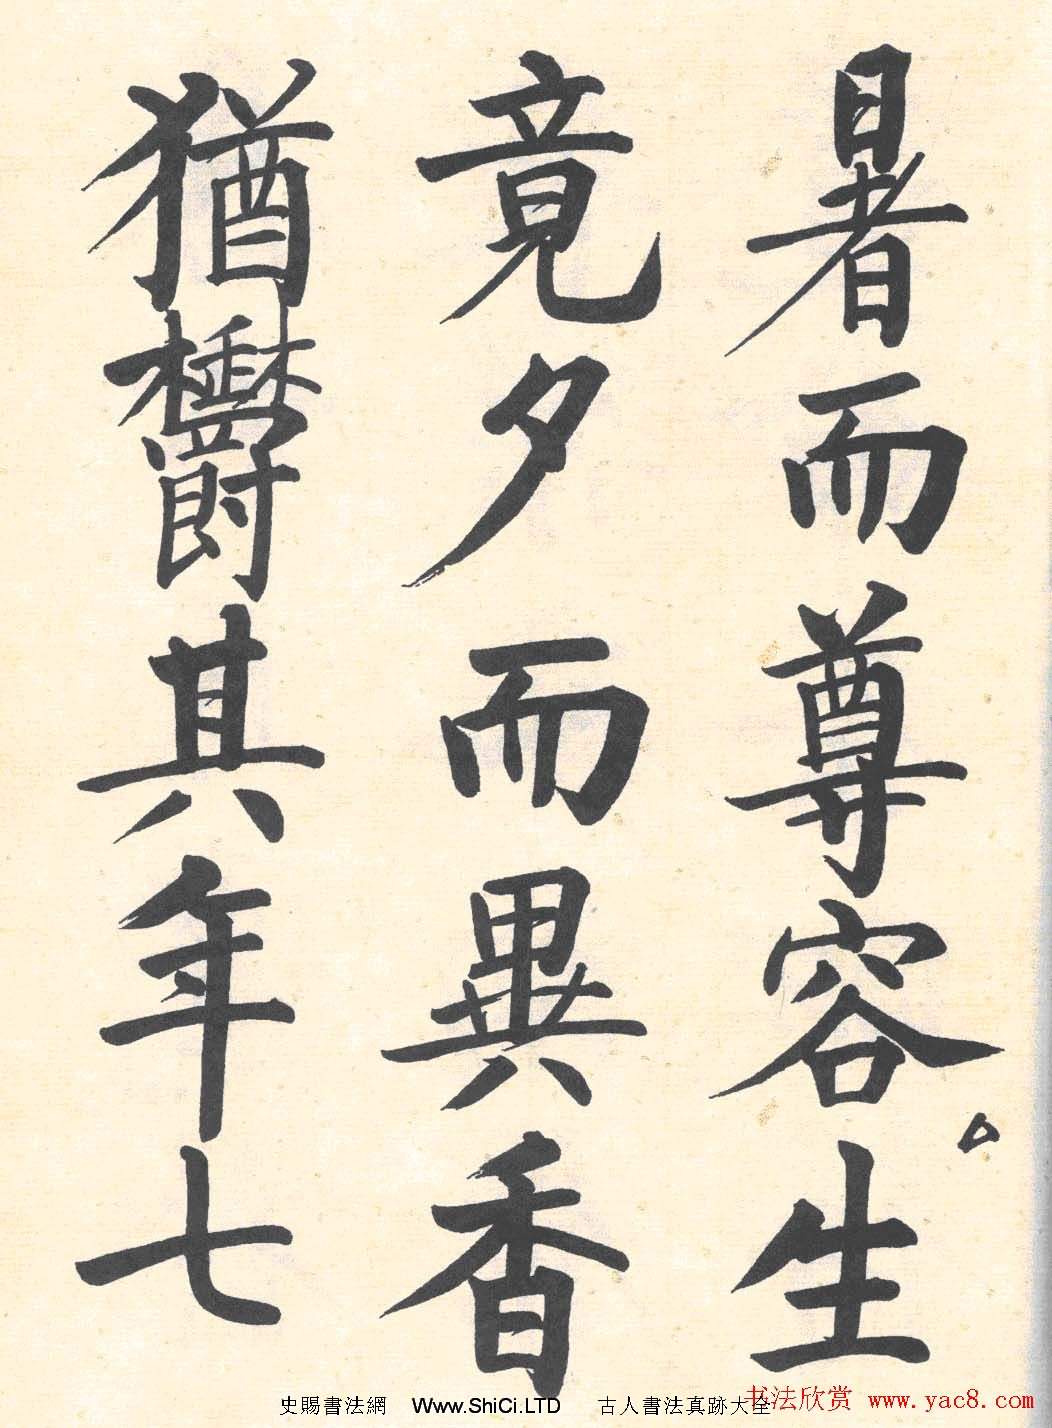 暑而尊容生
竟夕而異香
猶欝其年七
史賜書法網 Www.ShiCi.LTD 古人書法真跡大全
书法欣赏 www.yac8.com